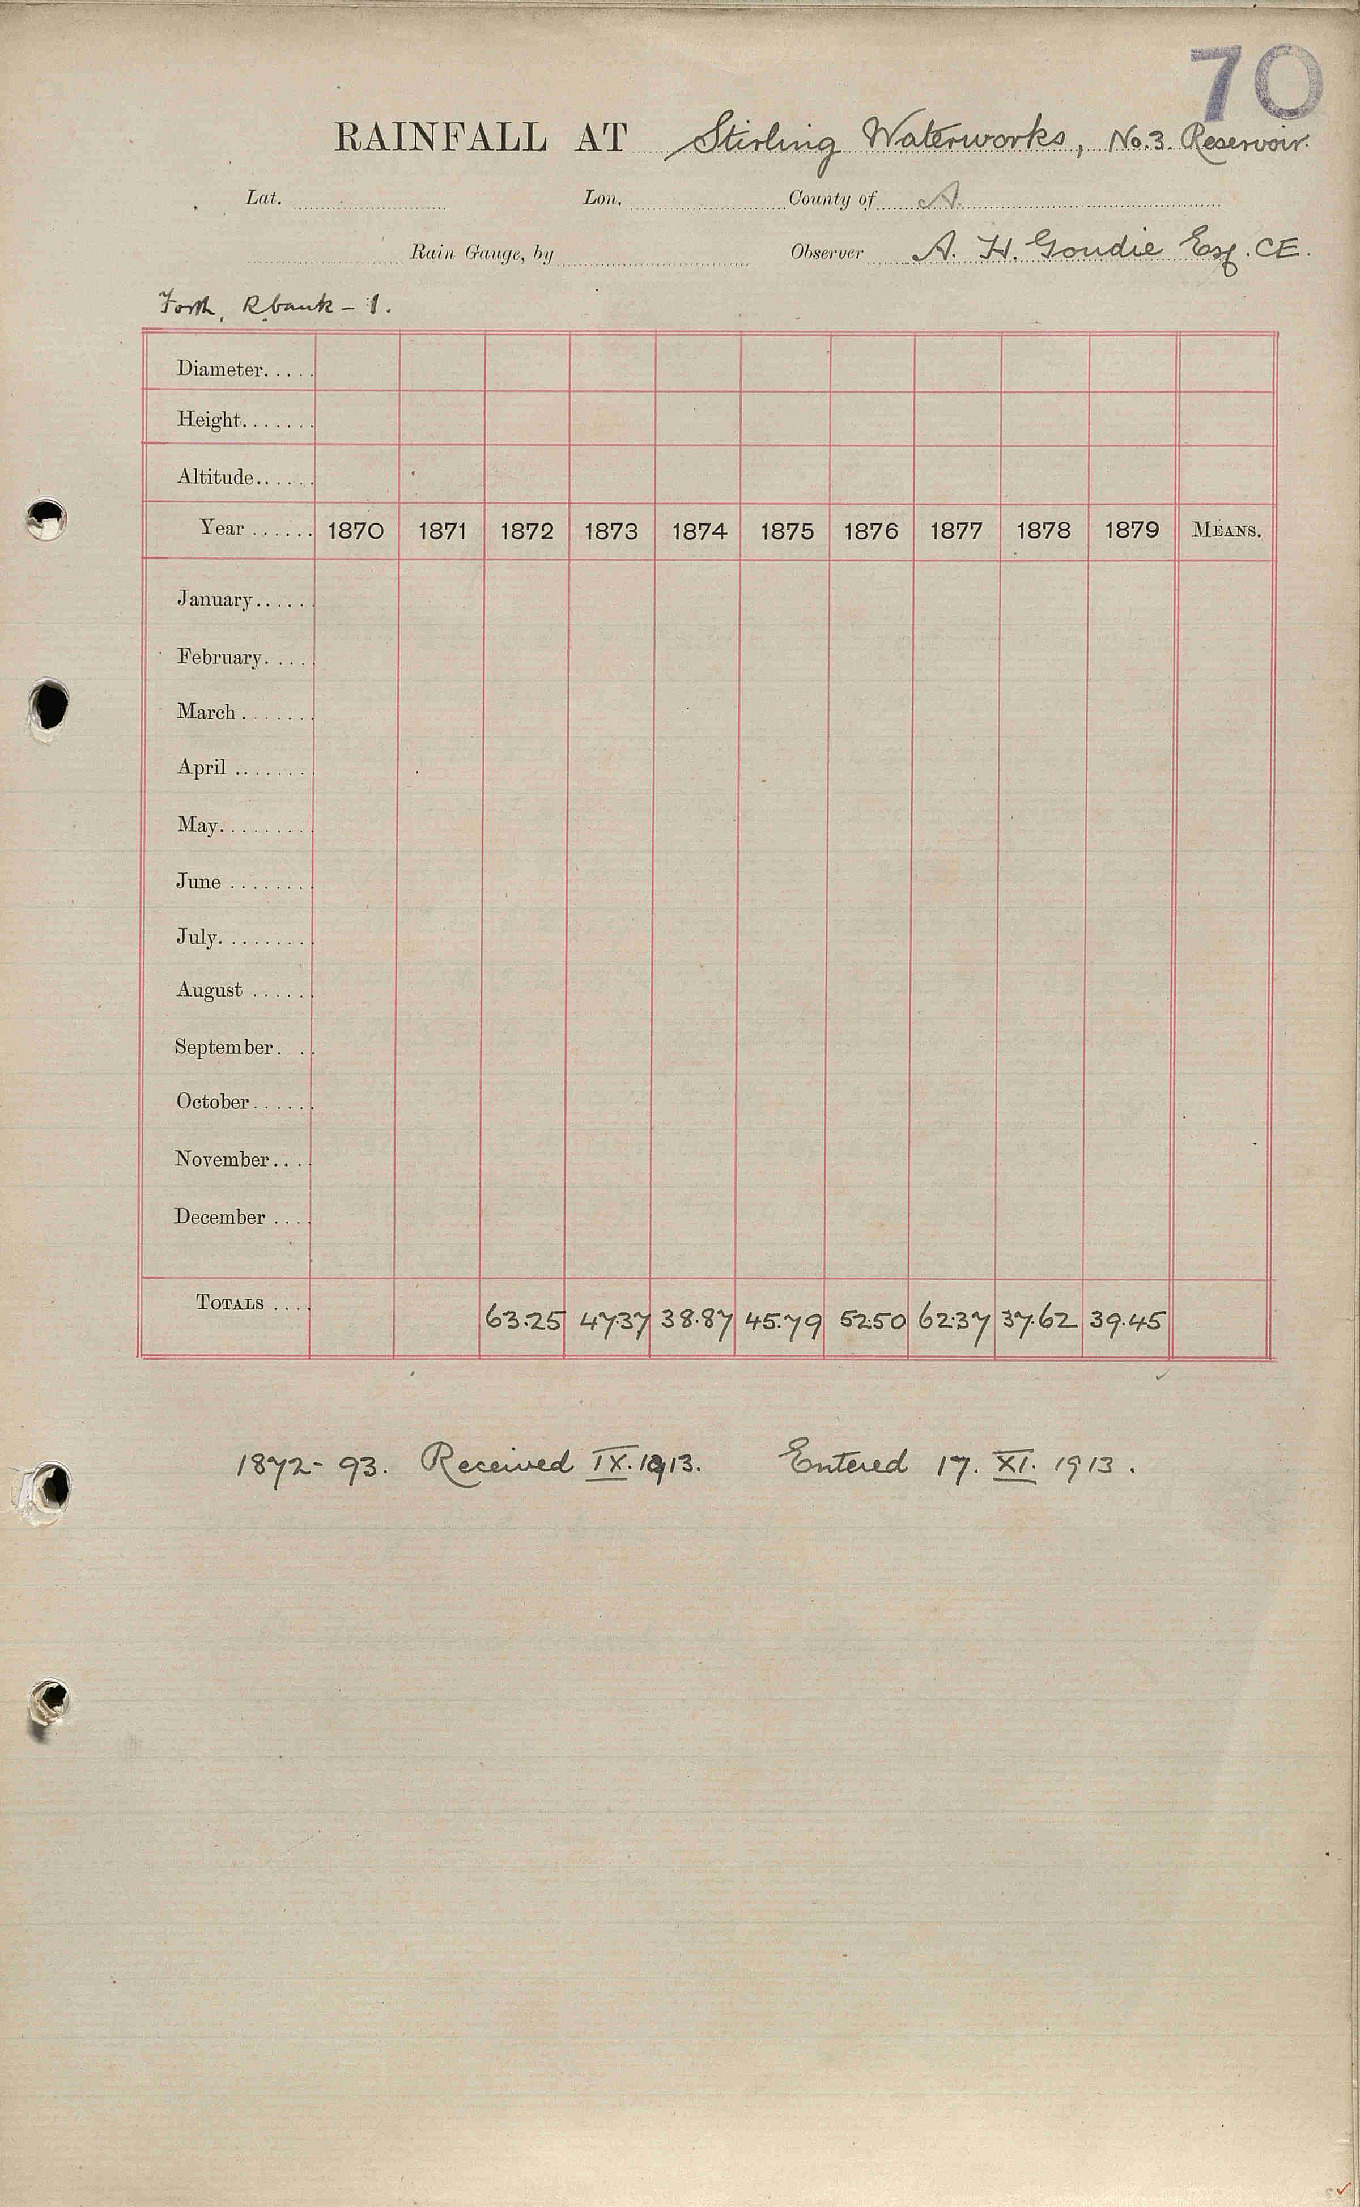 70
RAINFALL AT Stirling Waterworks, No. 3. Reservoir.
Lat. Lon. County of A.
Rain Gauge, by Observer A. H. Goudie Esq. CE.
Forth, R. bank - 1.
Diameter.....
Height.......
Altitude......
Year ...... 1870 1871 1872 1873 1874 1875 1876 1877 1878 1879 MEANS.
January......
February.....
March .......
April .......
May.........
June ........
July.........
August ......
September. ..
October......
November....
December ....
TOTALS .... 63.25 47.37 38.87 45.79 52.50 62.37 37.62 39.45
1872- 93. Received IX. 1913. Entered 17. XI. 1913.